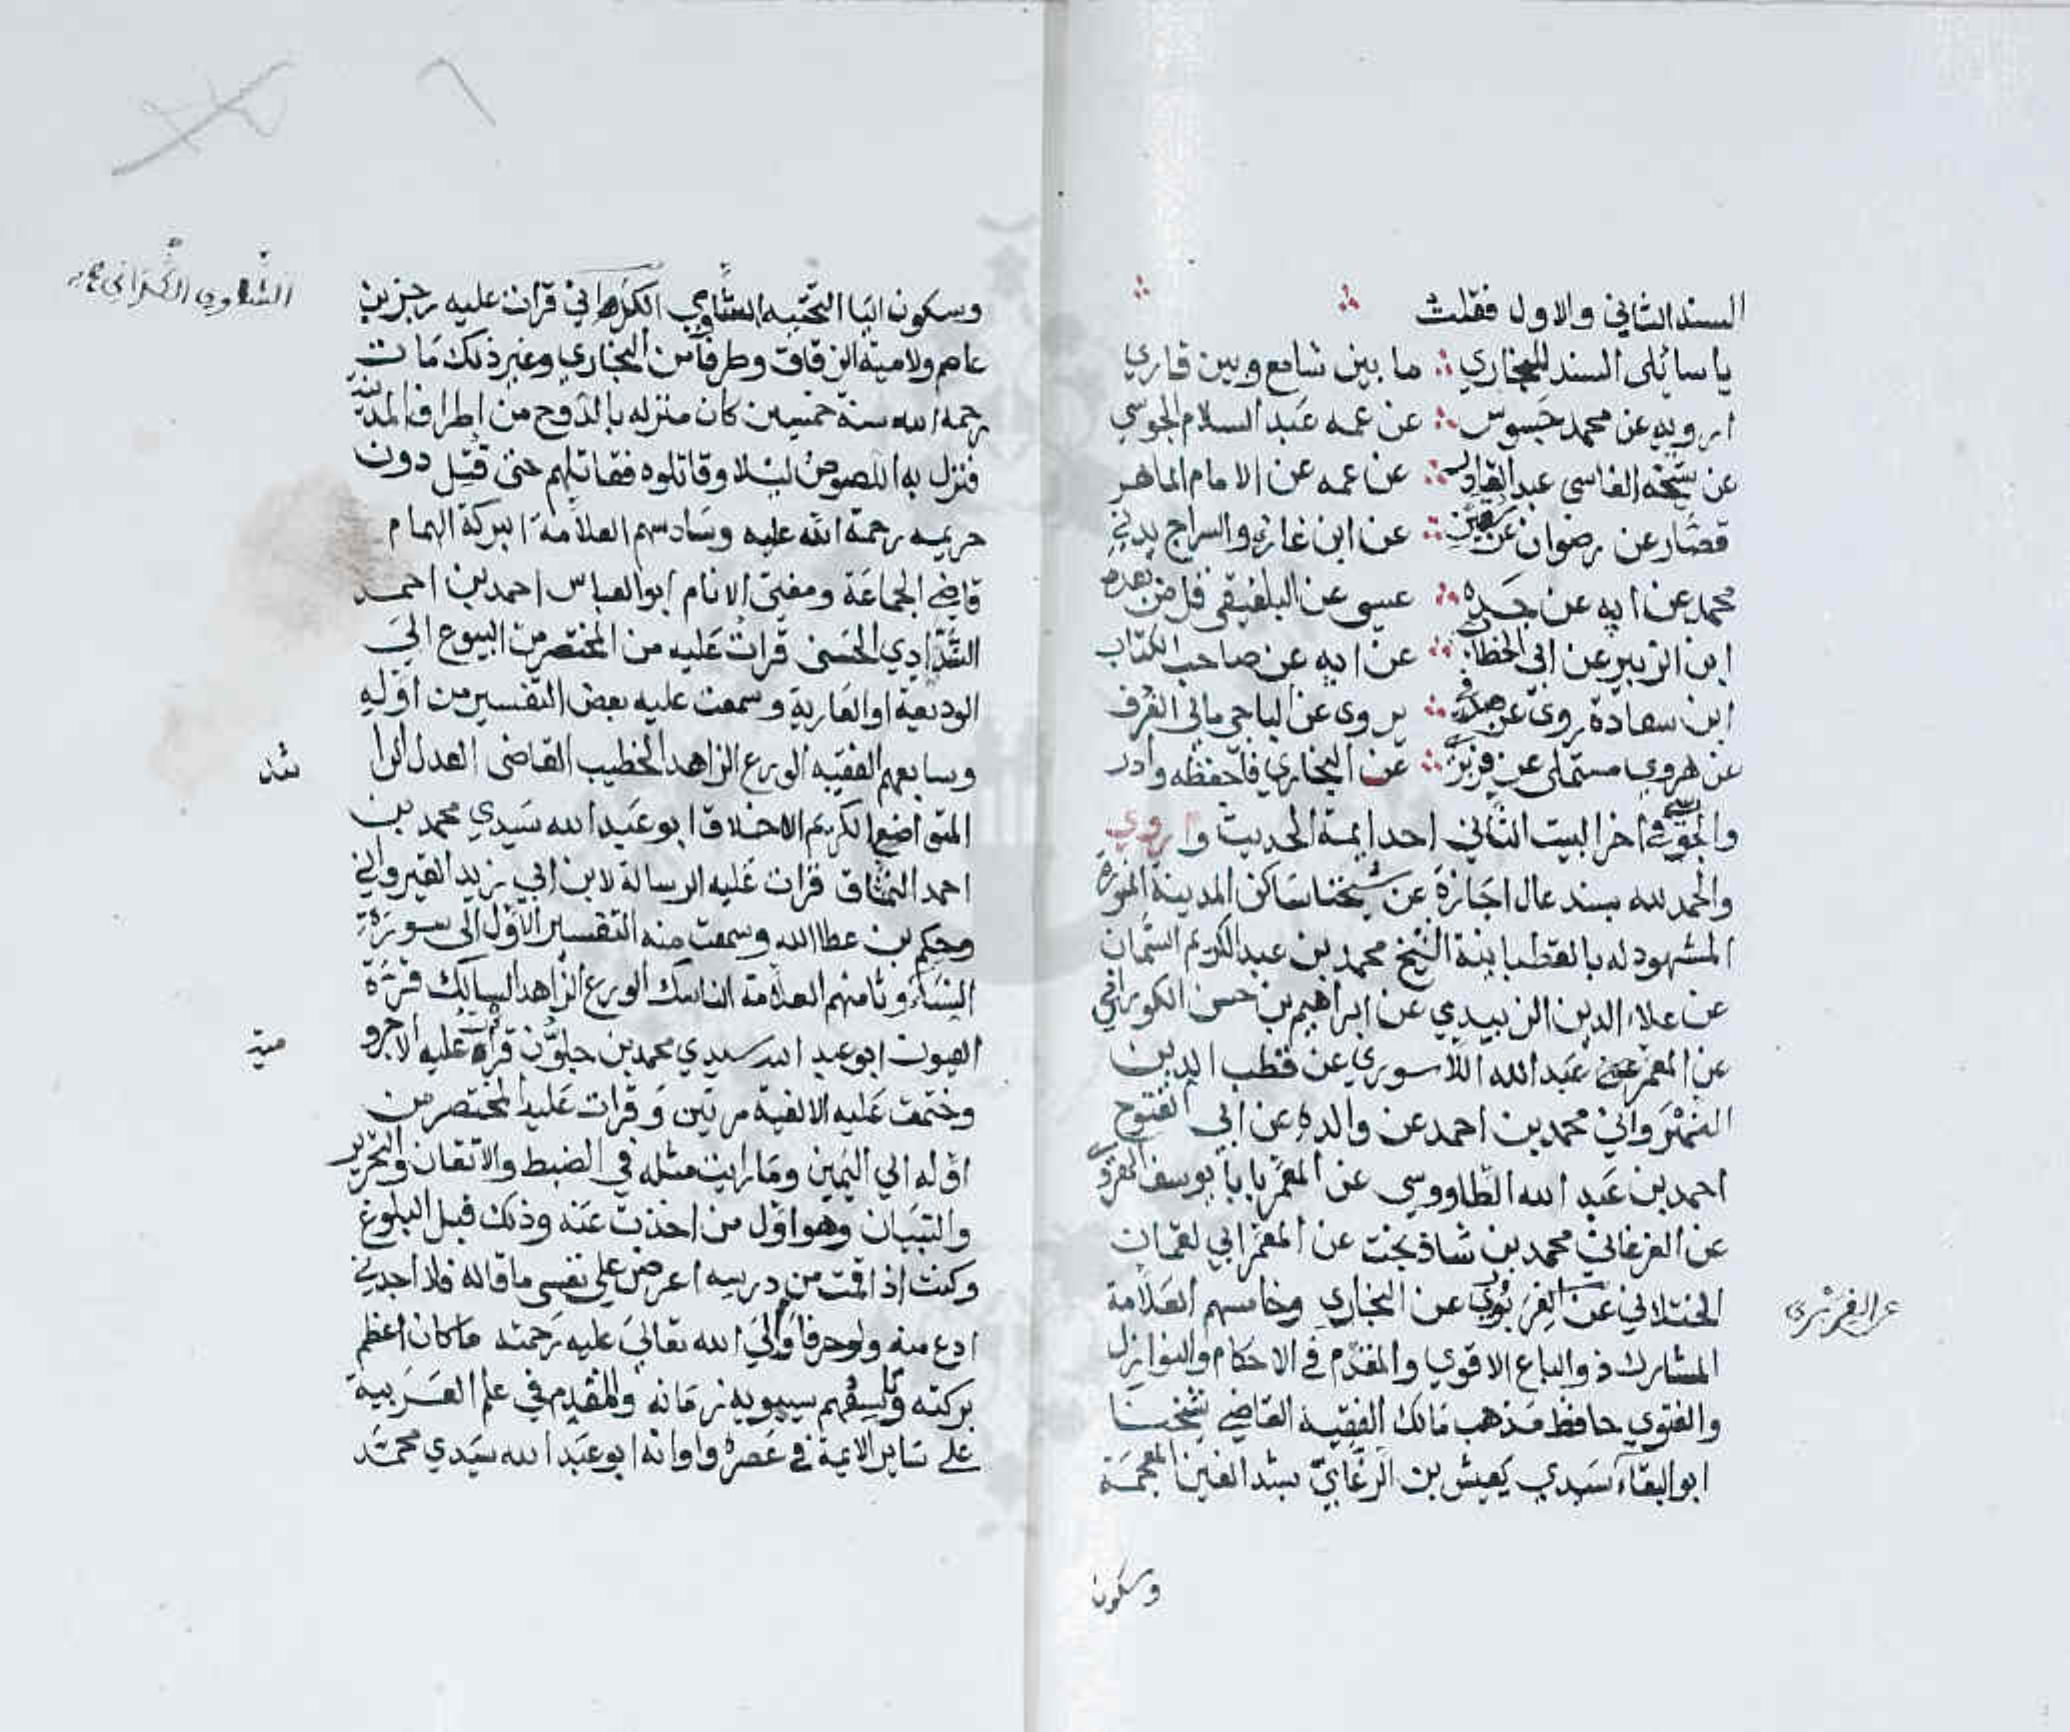 السند الثاني والاول فقلت
يا سائلى السند للبخاري ∴ ما بين سامع وبين قاري
ارويه عن محمد جسوس ∴ عن عمه عبد السلام الجوسي
عن شيخه الفاسي عبد القادر ∴ عن عمه عن الامام الماهر
قصار عن رضوان عن سقين ∴ عن ابن غازي والسراج يدني
محمد عن ابيه عن جده ∴ عيسى عن البلفيقي قل من بعده
ابن الزبير عن ابى الخطاب ∴ عن ابيه عن صاحب الكتاب
ابن سعادة روى عن صدفي ∴ يروى عن الباجي مابي الغرف
عن هروي مستملى عن فربري ∴ عن البخاري فاحفظه وادر
والجوسي في اخر البيت الثاني احد ايمة الحديث واروي
والحمد لله بسند عال اجازة عن شيخنا ساكن المدينة المنورة
المشهود له بالقطبانية الشيخ محمد بن عبد الكريم السمان
عن علاء الدين الزبيدي عن ابراهيم بن حسن الكوراني
عن المعمر عبد الله اللاسوري عن قطب الدين
النهرواني محمد بن احمد عن والده عن ابي الفتوح
احمد بن عبد الله الطاووسي عن المعمر بابا يوسف الهروي
عن الفرغاني محمد بن شاذبخت عن المعمر ابي لقمان
الختلاني عن الفربري عن البخاري وخامسهم العلامة
عن الفربري
المشارك ذو الباع الاقوي والمقدم في الاحكام والنوازل
والفتوي حافظ مذهب مالك الفقيه القاضي شيخنا
ابو البقاء سيدي يعيش بن الرغاي بشد الغين المعجمة
وسكون
وسكون اليا التحتيه الشاوي قرات عليه رجز بن
الشاوي
عاصم ولامية الزقاق وطرفا من البخاري وغير ذلك مات
رحمه الله سنة خمسين كان منزله بالدوح من اطراف المدينة
فنزل به اللصوص ليلا وقاتلوه فقاتلهم حتى قتل دون
حريمه رحمة الله عليه وسادسهم العلامة البركة الهمام
قاضي الجماعة ومفتي الانام ابو العباس احمد بن احمد
الشدادي الحسنى قرات عليه من المختصر من البيوع الى
الوديعة او العارية وسمعت عليه بعض التفسير من اوله
وسابعهم الفقيه الورع الزاهد الخطيب القاضى العدل الرا
شد
المتواضع الكريم الاخلاق ابو عبد الله سيدي محمد بن
احمد التماق قرات عليه الرسالة لابن ابي زيد القيرواني
وحكم بن عطا الله وسمعت منه التفسير الاول الى سورة
النساء وثامنهم العلامة الناسك الورع الزاهد السالك قرة
العيون ابو عبد الله سيدي محمد بن جلون قرات عليه الاجرو
مية
وختمت عليه الالفية مرتين وقرات عليه المختصر من
اوله الي اليمين وما رايت مثله في الضبط والاتقان والتحرير
والتبيان وهو اول من اخذت عنه وذلك قبل البلوغ
وكنت اذا قمت من درسه اعرض على نفسى ما قاله فلا اجدني
ادع منه ولو حرفا والي الله تعالى عليه رحمته ما كان اعظم
بركته وتاسعهم سيبويه زمانه والمقدم في علم العربية
على ساير الايمة في عصره واوانه ابو عبد الله سيدي محمد